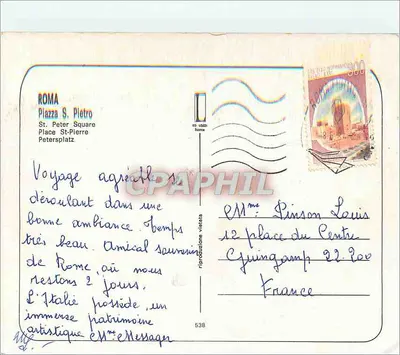 ROMA
Piazza S. Pietro
St. Peter Square
Place St-Pierre
Petersplatz
Voyage agréable se
déroulant dans une
bonne ambiance. Temps
très beau. Amical souvenir
de Rome, où nous
restons 2 jours.
L'Italie possède un
immense patrimoine
artistique Mme Messager
riproduzione vietata
538
CPAPHIL
Mme Pinson Louis
12 place du Centre
Guingamp 22.200
France